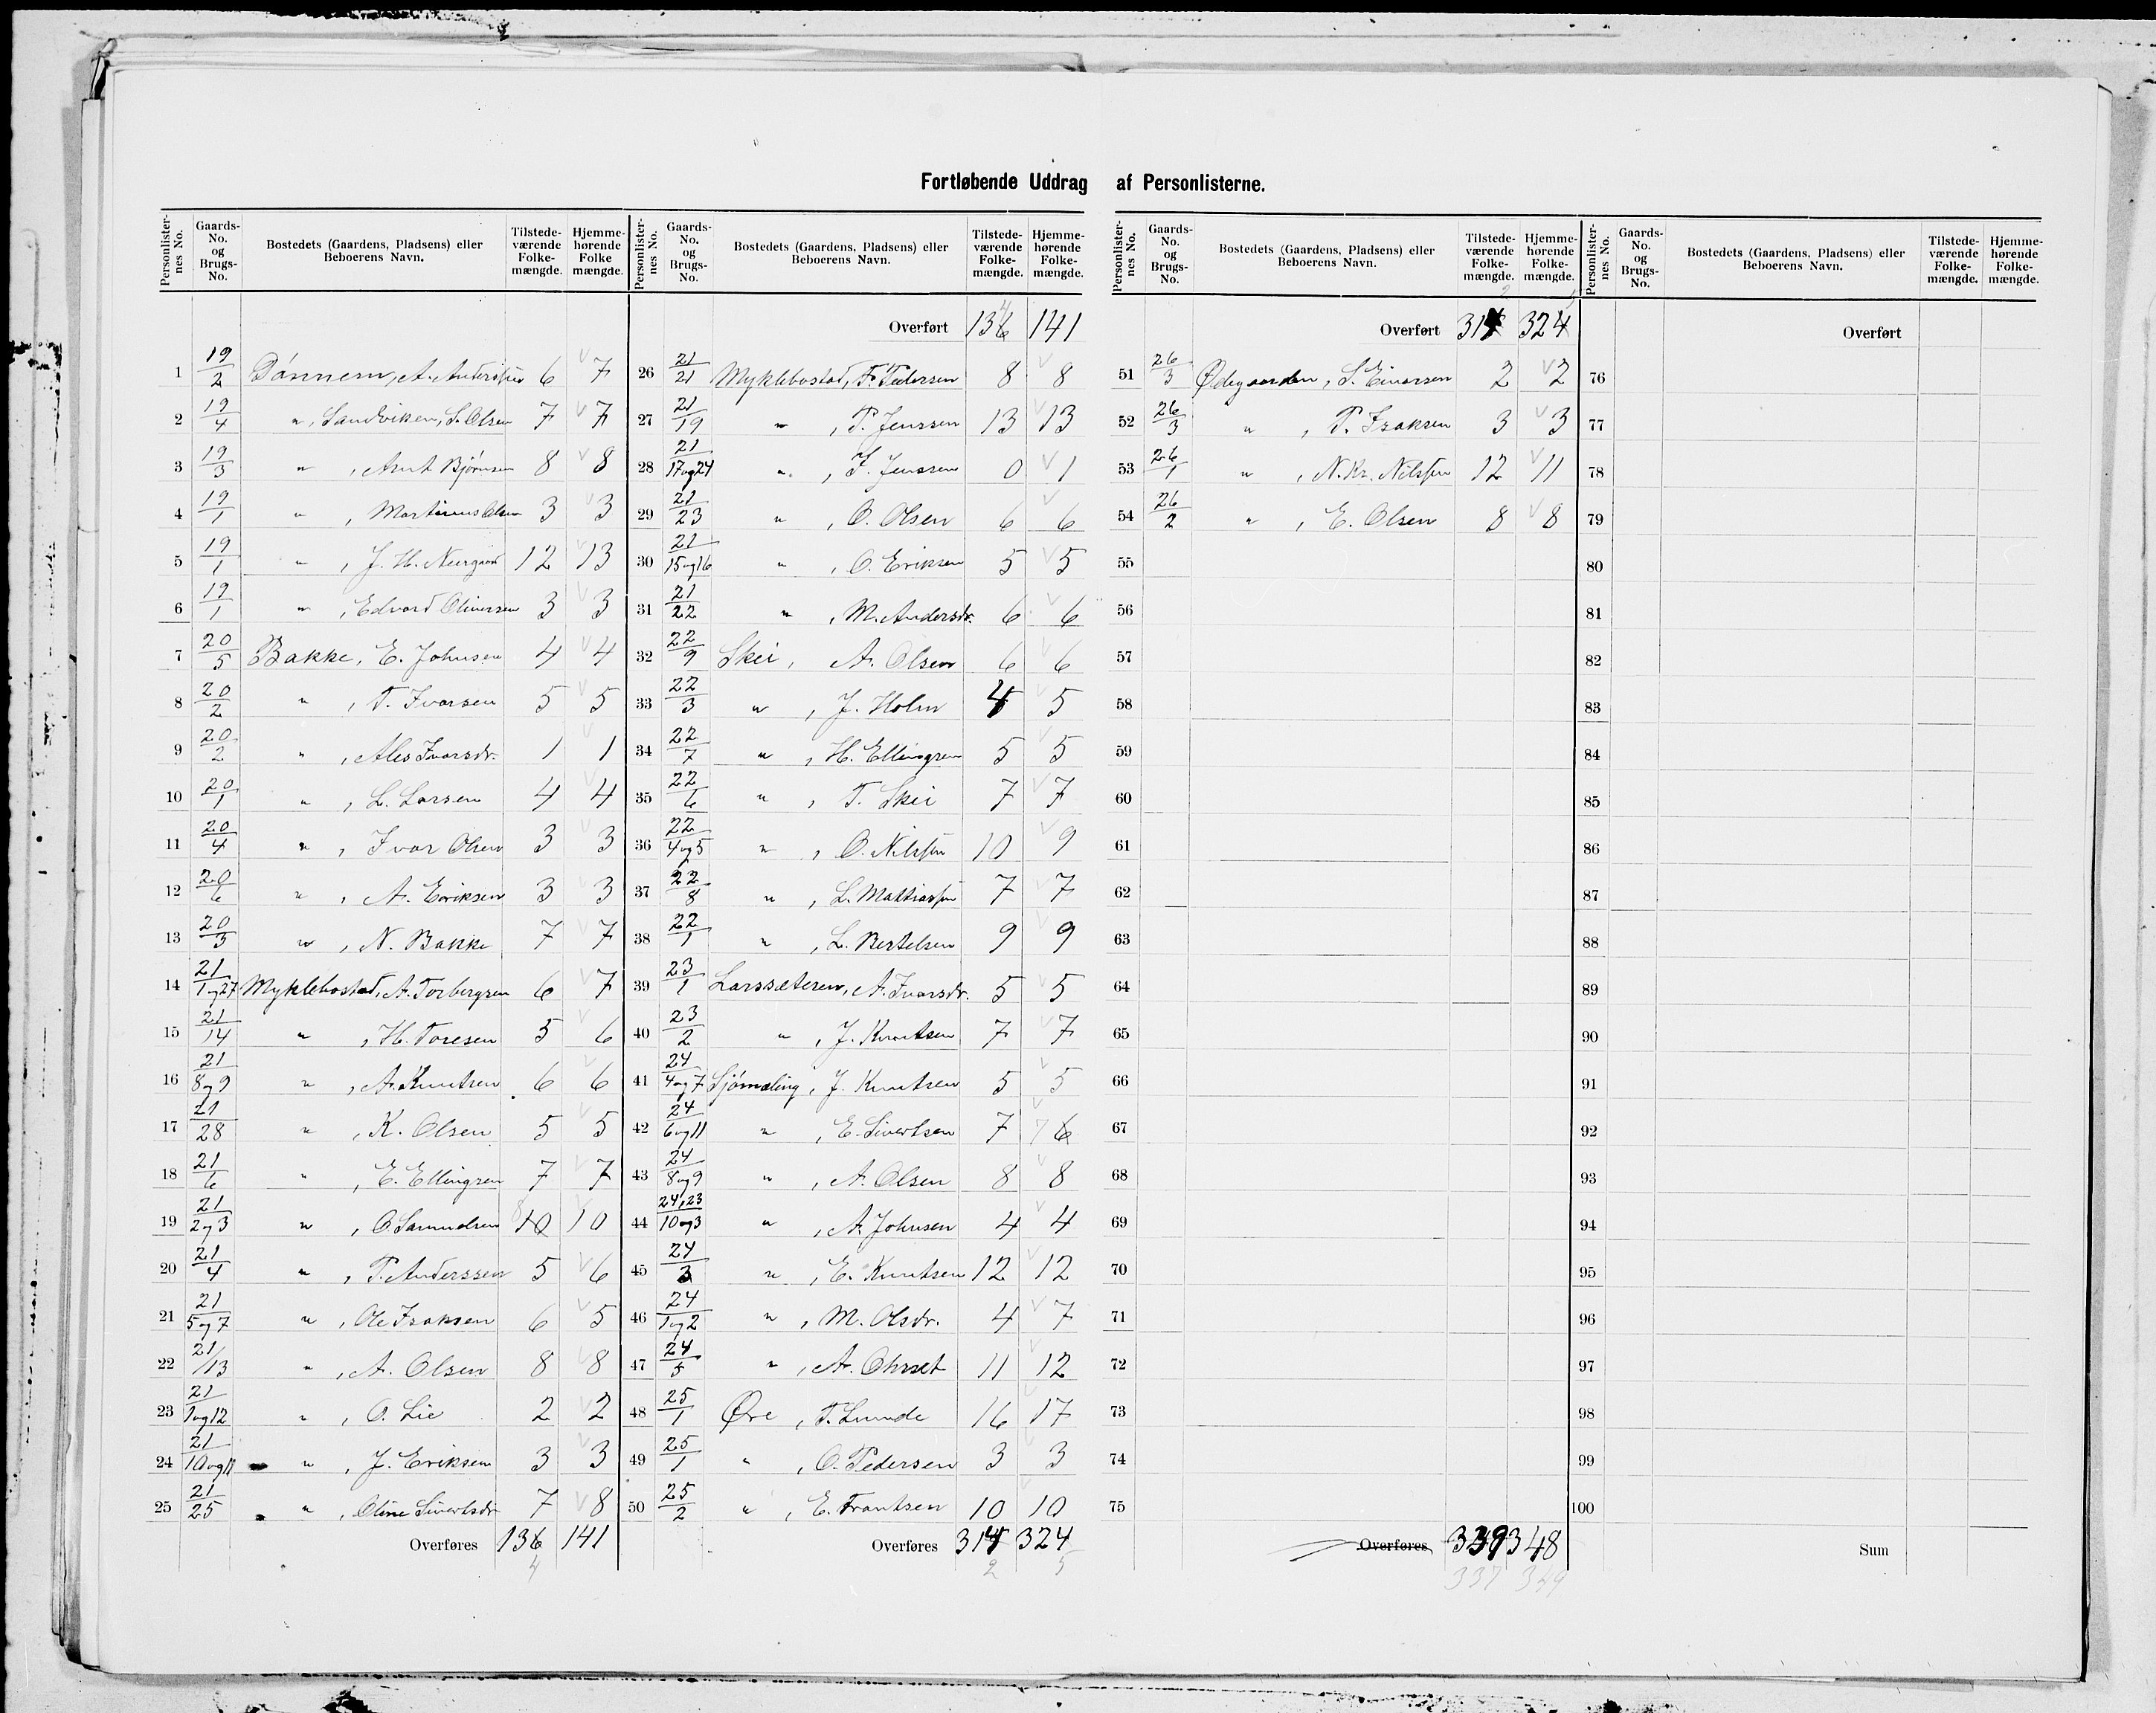 Fortløbende Uddrag af Personlisterne.
Personlister-nes No. Gaards-No. og Brugs-No. Bostedets (Gaardens, Pladsens) eller Beboerens Navn. Tilstede-værende Folke-mængde. Hjemme-hørende Folke mængde.
1 19/2 Dønnem, A. Anderssen 6 7
2 19/4 " , Sandviken, S. Olsen 7 7
3 19/3 " , Arnt Bjørnsen 8 8
4 19/1 " , Martinus Olsen 3 3
5 19/1 " , J. H. Neergaard 12 13
6 19/1 " , Edvard Oliversen 3 3
7 20/5 Bakke, E. Johnsen 4 4
8 20/2 " , T. Ivarsen 5 5
9 20/2 " , Ales Ivarsdr. 1 1
10 20/1 " , L. Larsen 4 4
11 20/4 " , Ivar Olsen 3 3
12 20/6 " , A. Eriksen 3 3
13 20/3 " , N. Bakke 7 7
14 21/1og27 Myklebostad, A. Torbergsen 6 7
15 21/14 " , H. Toresen 5 6
16 21/8og9 " , A. Knutsen 6 6
17 21/28 " , K. Olsen 5 5
18 21/6 " , E. Ellingsen 7 7
19 21/2og3 " , O. Samuelsen 8 10 10
20 21/4 " , P. Anderssen 5 6
21 21/5og7 " , Ole Isaksen 6 5
22 21/13 " , A. Olsen 8 8
23 21/1og12 " , O. Lie 2 2
24 21/10og11 " , J. Eriksen 3 3
25 21/25 " , Oline Sivertsdr. 7 8
Overføres 136 141
4
Personlister-nes No. Gaards-No. og Brugs-No. Bostedets (Gaardens, Pladsens) eller Beboerens Navn. Tilstede-værende Folke-mængde. Hjemme-hørende Folke-mængde.
4
Overført 136 141
26 21/21 Myklebostad, F. Pedersen 8 8
27 21/19 " , P. Jenssen 13 13
28 21/17og24 " , J. Jenssen 0 1
29 21/23 " , O. Olsen 6 6
30 21/15og16 " , O. Eriksen 5 5
31 21/22 " , M. Andersdr. 6 6
32 22/9 Skei, A. Olsen 6 6
33 22/3 " , J. Holm 4 5
34 22/7 " , H. Ellingsen 5 5
35 22/6 " , T. Skei 7 7
36 22/4og5 " , O. Nilssen 10 9
37 22/8 " , L. Mathiassen 7 7
38 22/1 " , L. Bertelsen 9 9
39 23/1 Larssæteren, A. Ivarsdr. 5 5
40 23/2 " , J. Knutsen 7 7
41 24/4og7 Sjømæling, J. Knutsen 5 5
42 24/6og11 " , E. Sivertsen 7 7 6
43 24/8og9 " , A. Olsen 8 8
44 24,23/10og3 " , A. Johnsen 4 4
45 24/3 " , E. Knutsen 12 12
46 24/1og2 " , M. Olsdr. 4 7
47 24/5 " , A. Ohrset 11 12
48 25/1 Øre, T. Lunde 16 17
49 25/1 " , O. Pedersen 3 3
50 25/2 " , E. Frantsen 10 10
Overføres 314 324
2 5
Personlister-nes No. Gaards-No. og Brugs-No. Bostedets (Gaardens, Pladsens) eller Beboerens Navn. Tilstede-værende Folke-mængde. Hjemme-hørende Folke-mængde.
Overført 314 324
51 26/3 Ødegaarden, S. Einarsen 2 2
52 26/3 " , P. Isaksen 3 3
53 26/1 " , N. Kr. Nilssen 12 11
54 26/2 " , E. Olsen 8 8
55
56
57
58
59
60
61
62
63
64
65
66
67
68
69
70
71
72
73
74
75
Overføres 339 348
337 349
Personlister-nes No. Gaards-No. og Brugs-No. Bostedets (Gaardens, Pladsens) eller Beboerens Navn. Tilstede-værende Folke-mængde. Hjemme-hørende Folke-mængde.
Overført
76
77
78
79
80
81
82
83
84
85
86
87
88
89
90
91
92
93
94
95
96
97
98
99
100
Sum